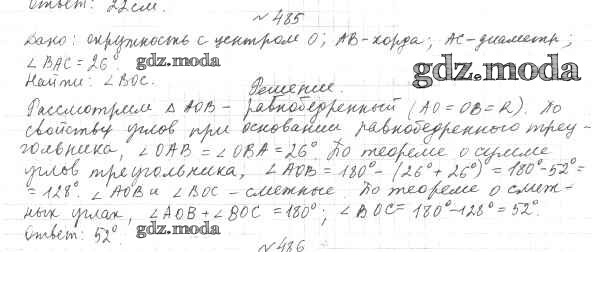 Ответ: 22 см.
№ 485
Дано: окружность с центром О; АВ-хорда; АС-диаметр;
∠ВАС = 26° gdz.moda
Найти: ∠ВОС. gdz.moda
Решение.
Рассмотрим △ АОВ - равнобедренный (АО = ОВ = R). По
свойству углов при основании равнобедренного треу-
гольника, ∠ОАВ = ∠ОВА = 26°. По теореме о сумме
углов треугольника, ∠АОВ = 180° - (26° + 26°) = 180° - 52° =
= 128°. ∠АОВ и ∠ВОС - смежные. По теореме о смеж-
ных углах, ∠АОВ + ∠ВОС = 180°; ∠ВОС = 180° - 128° = 52°.
Ответ: 52°. gdz.moda
№ 486